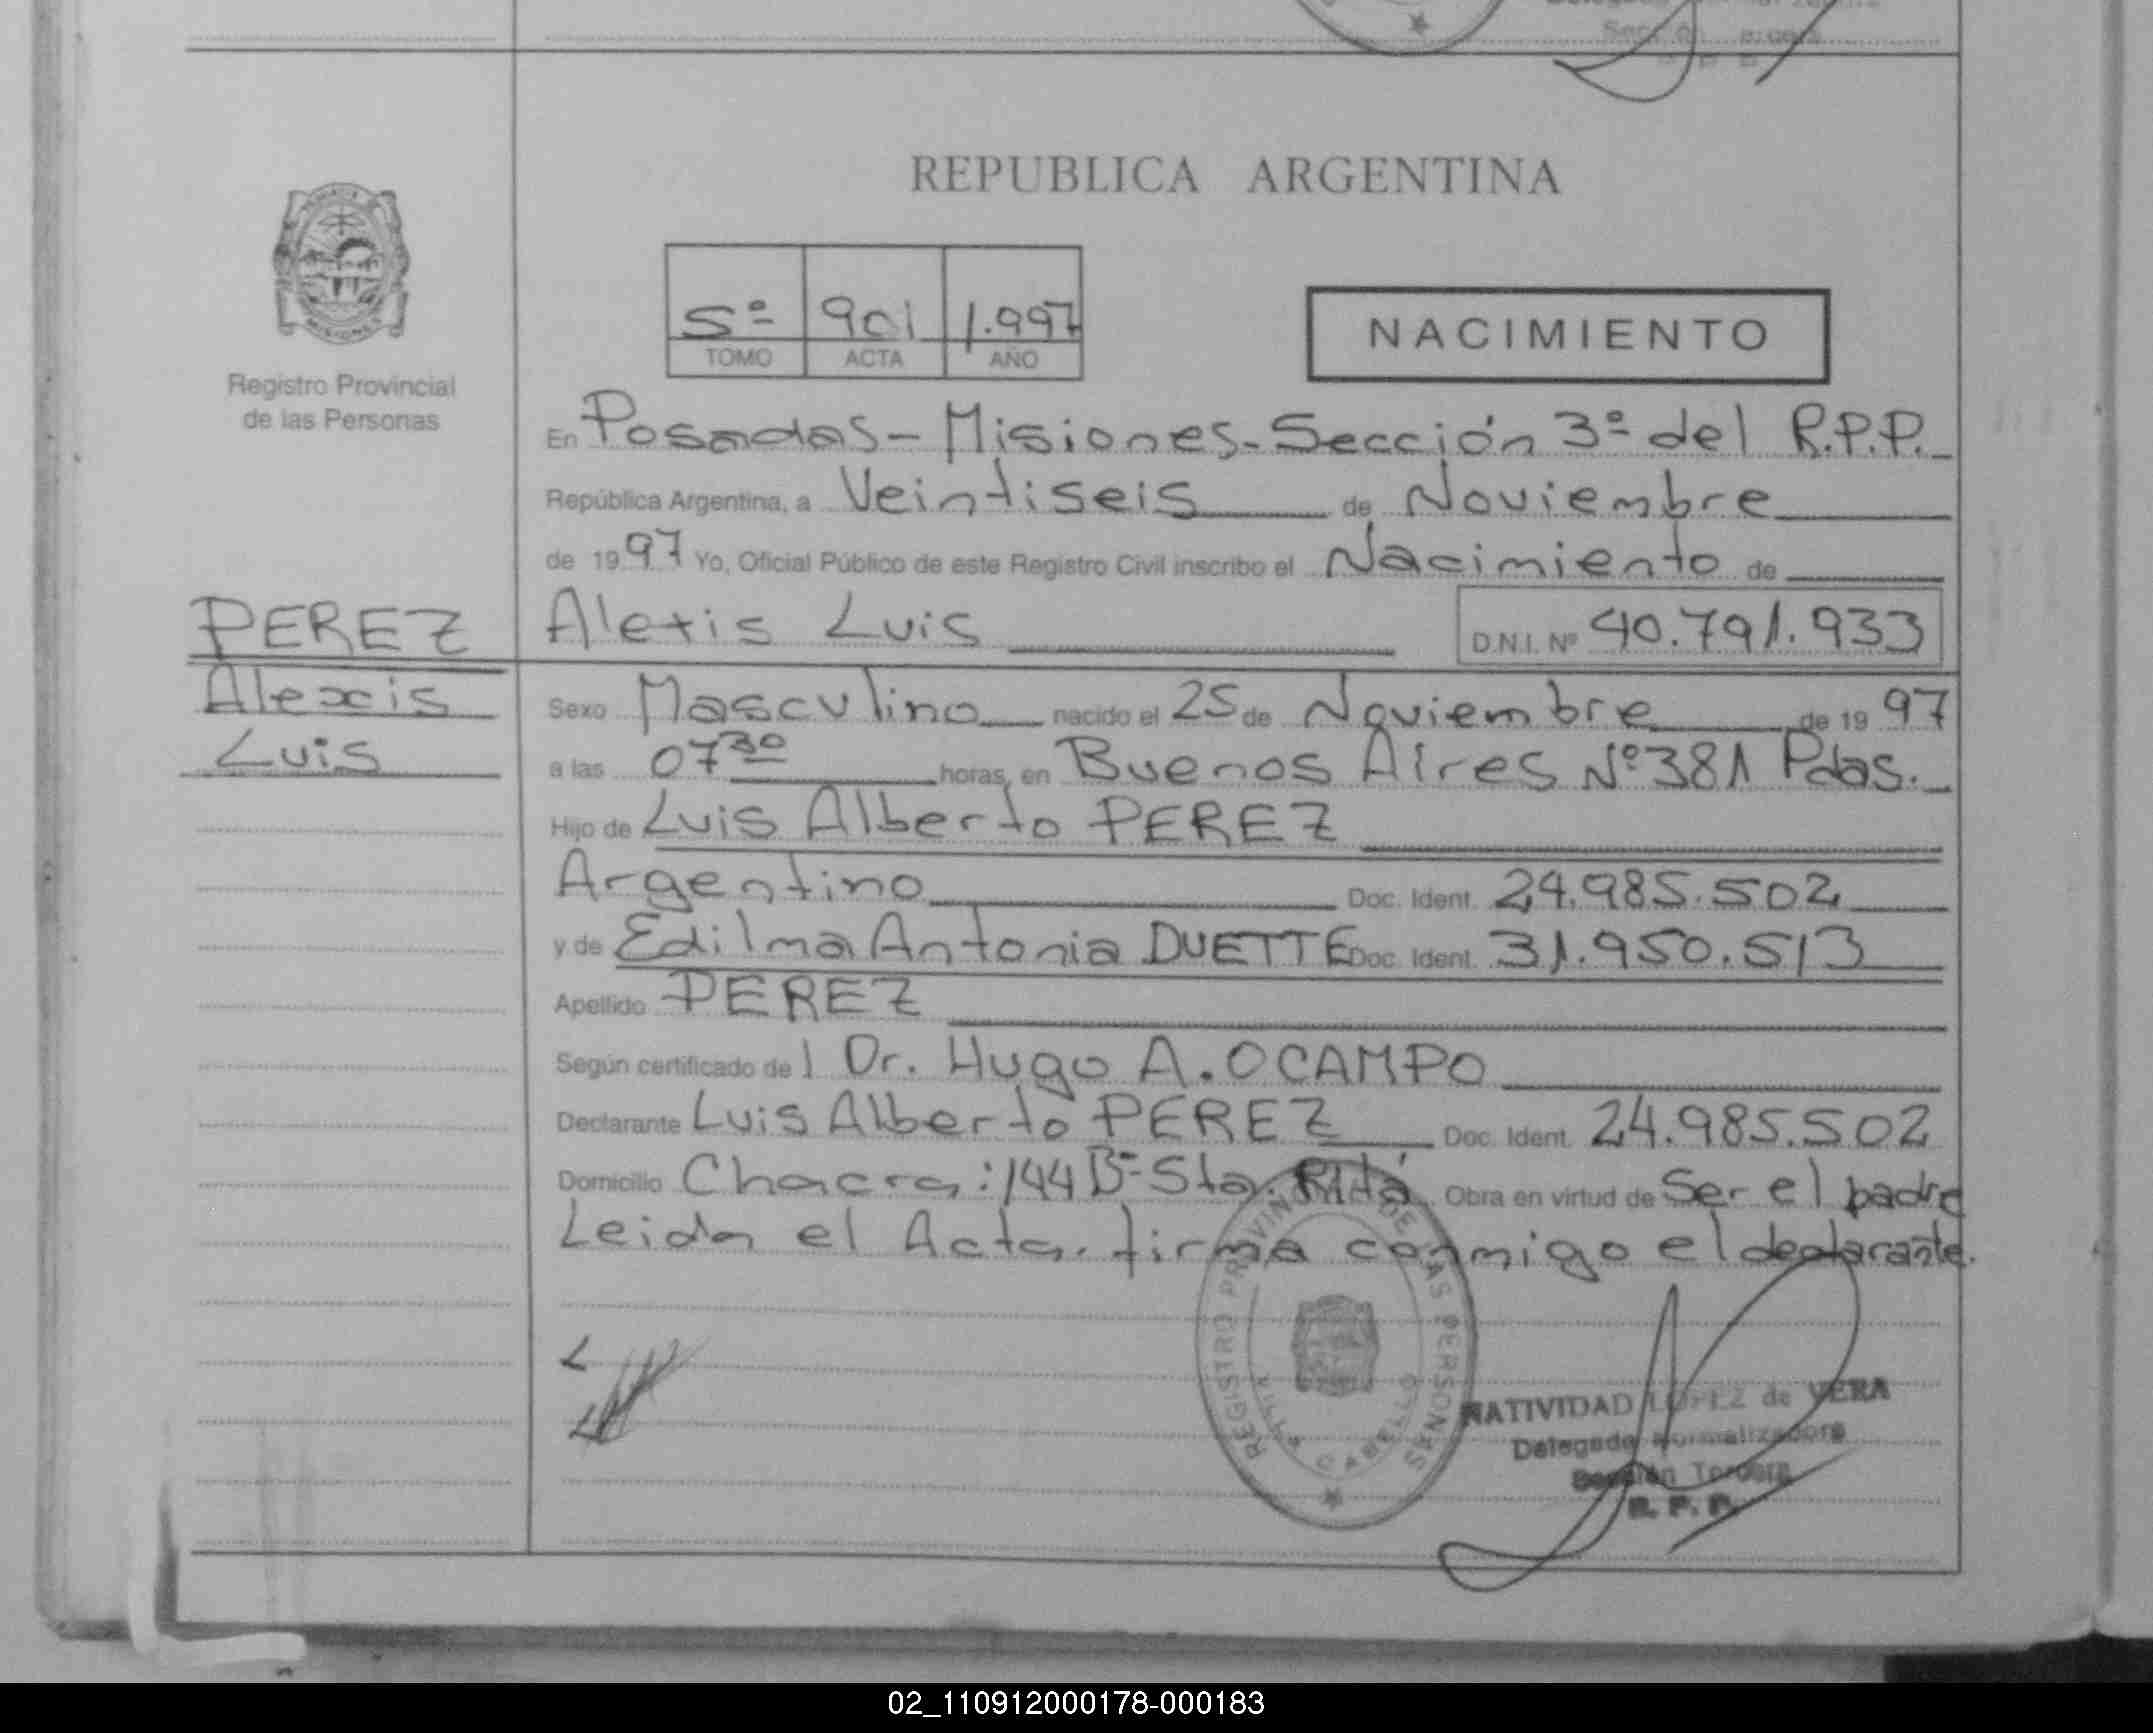 REPUBLICA ARGENTINA
5º 901 1.997
TOMO ACTA AÑO
NACIMIENTO
Registro Provincial
de las Personas
En Posadas - Misiones - Sección 3º del R.P.P.
República Argentina, a Veintiseis de Noviembre
de 1997 Yo, Oficial Público de este Registro Civil inscribo el Nacimiento de
PEREZ
Alexis
Luis
Alexis Luis D.N.I. Nº 40.791.933
Sexo Masculino nacido el 25 de Noviembre de 1997
a las 07 30 horas, en Buenos Aires Nº 381 Pdas.
Hijo de Luis Alberto PEREZ
Argentino Doc. Ident. 24.985.502
y de Edilma Antonia DUETTE Doc. Ident. 31.950.513
Apellido PEREZ
Según certificado del Dr. Hugo A. OCAMPO
Declarante Luis Alberto PEREZ Doc. Ident. 24.985.502
Domicilio Chacra: 144 Bº Sta. Rita Obra en virtud de Ser el padre
Leida el Acta. firma conmigo el declarante.
REGISTRO PROVINCIAL DE LAS PERSONAS
VILLA CABELLO
NATIVIDAD LOPEZ de VERA
Delegada Normalizadora
Sección Tercera
R. P. P.
02_110912000178-000183